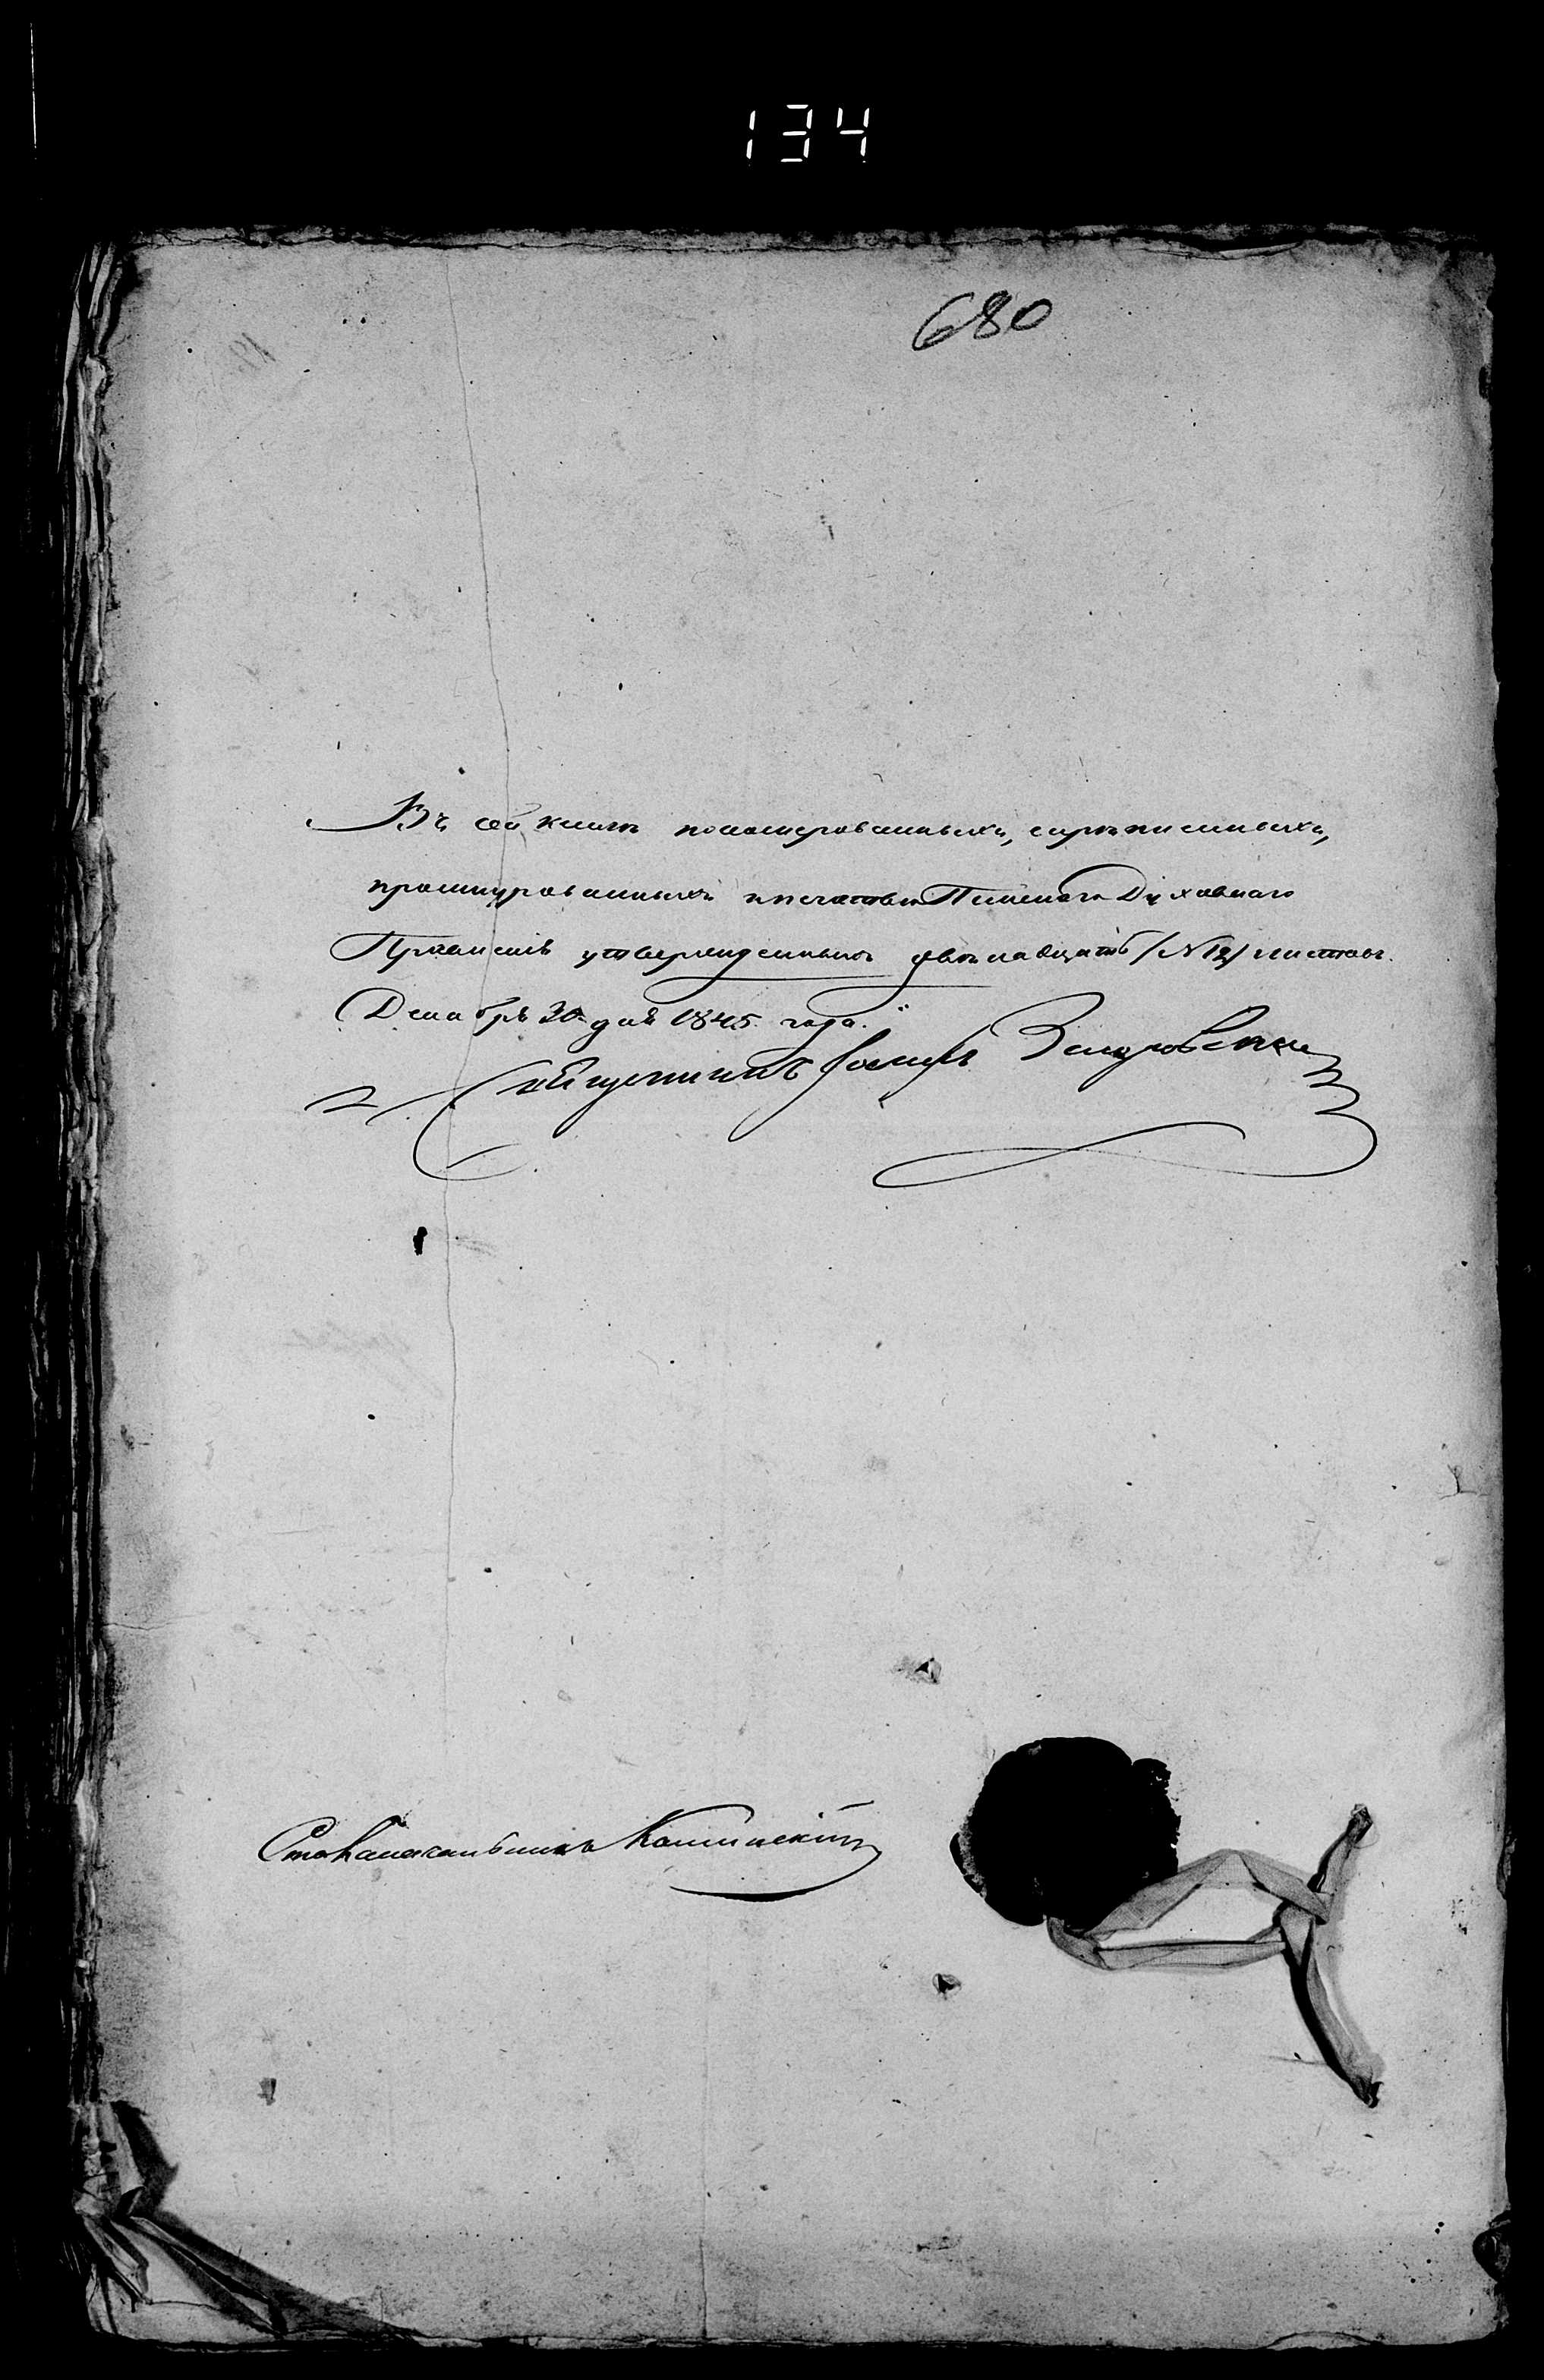 134
680
Въ сей книгѣ нономерованныхъ, скрѣпленныхъ,
прошнурованныхъ и печатью Пинскаго Духовнаго
Правленія утвержденныхъ двѣнадцать /№ 12/ листовъ.
Декабрь 30 дня 1845 года.
Священникъ Іосифъ
Столоначальникъ Каминскій